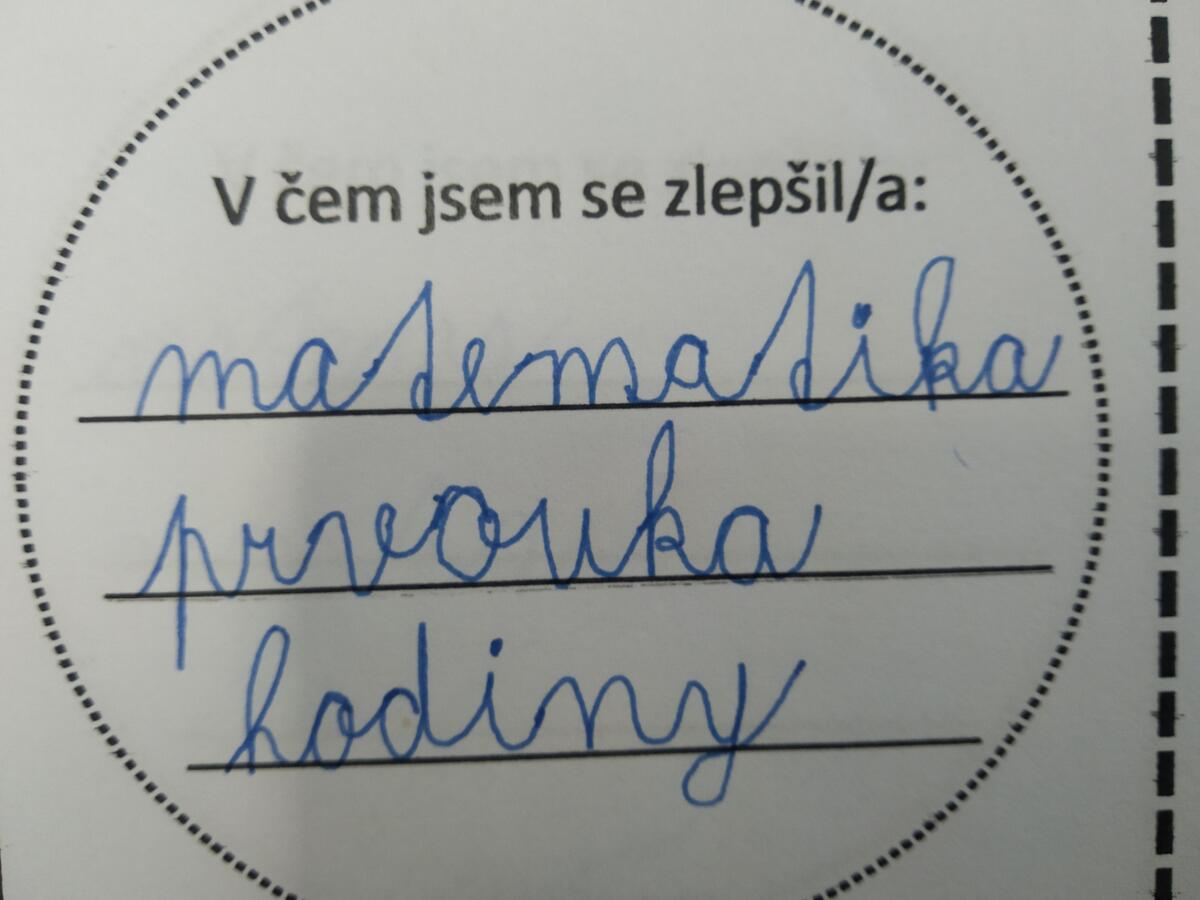 V čem jsem se zlepšil/a:
matematika
prvouka
hodiny